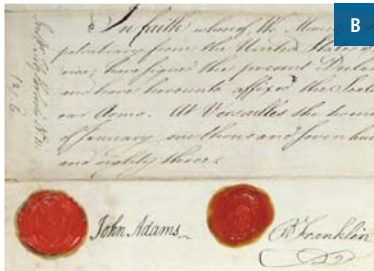 B
In faith whereof, the Minis
potentiary from the United States of
rica; have signed the present Decla
and have hereunto affixed the Seals
our Arms. At Versailles the twen
of January one thousand Seven hun
and eighty three.
John Adams
B Franklin